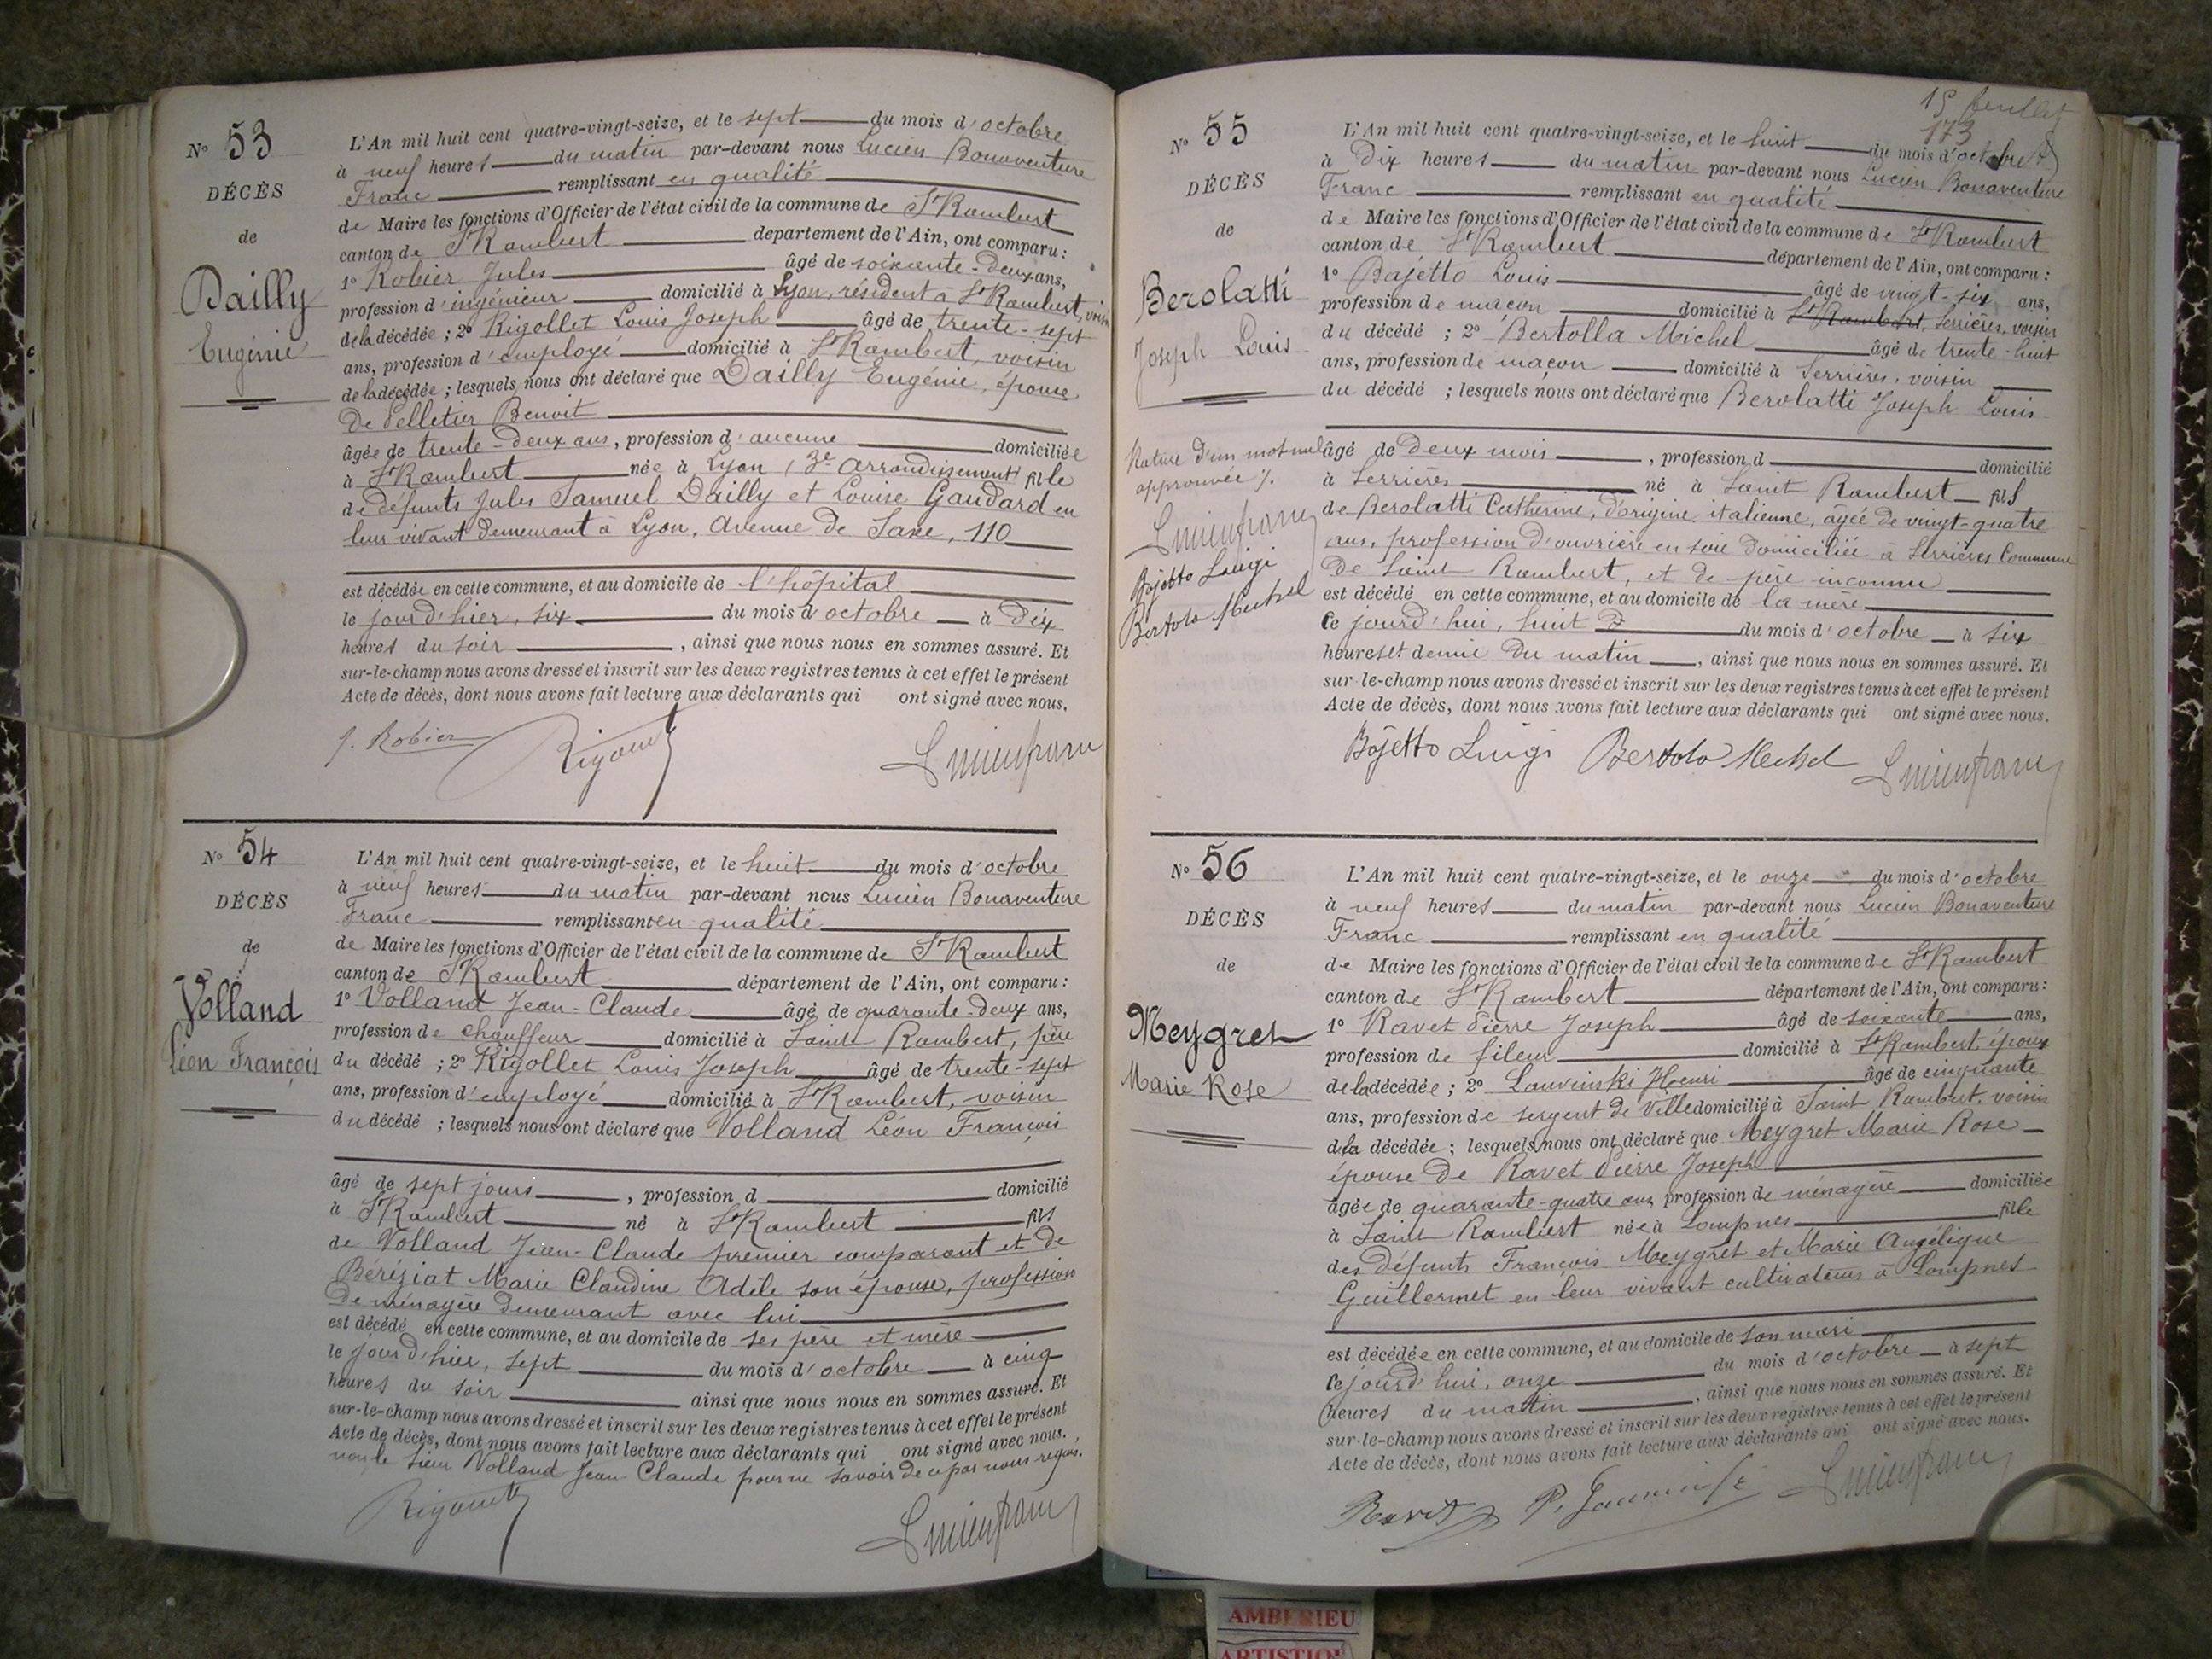 N° 53
DÉCÈS
de
Dailly
Eugénie
L'An mil huit cent quatre-vingt-seize, et le sept du mois d'octobre
à neuf heures du matin par-devant nous Lucien Bonaventure
Franc remplissant en qualité
de Maire les fonctions d'Officier de l'état civil de la commune de St Rambert
canton de St Rambert département de l'Ain, ont comparu :
1° Robier Jules âgé de soixante-deux ans,
profession d'ingénieur domicilié à Lyon, résident à St Rambert, voisin
de la décédée ; 2° Rigollet Louis Joseph âgé de trente-sept
ans, profession d'employé domicilié à St Rambert, voisin
de la décédée ; lesquels nous ont déclaré que Dailly Eugénie, épouse
de Pelletier Benoit
âgée de trente-deux ans, profession d'aucune domiciliée
à St Rambert née à Lyon (3e arrondissement) fille
de défunts Jules Samuel Dailly et Louise Gaudard en
leur vivant demeurant à Lyon, Avenue de Saxe, 110
est décédée en cette commune, et au domicile de l'hôpital
le jour d'hier, six du mois d'octobre à dix
heures du soir, ainsi que nous nous en sommes assuré. Et
sur-le-champ nous avons dressé et inscrit sur les deux registres tenus à cet effet le présent
Acte de décès, dont nous avons fait lecture aux déclarants qui ont signé avec nous.
J. Robier
N° 54
DÉCÈS
de
Volland
Léon François
L'An mil huit cent quatre-vingt-seize, et le huit du mois d'octobre
à neuf heures du matin par-devant nous Lucien Bonaventure
Franc remplissant en qualité
de Maire les fonctions d'Officier de l'état civil de la commune de St Rambert
canton de St Rambert département de l'Ain, ont comparu :
1° Volland Jean-Claude âgé de quarante-deux ans,
profession de chauffeur domicilié à Saint Rambert, père
du décédé ; 2° Rigollet Louis Joseph âgé de trente-sept
ans, profession d'employé domicilié à St Rambert, voisin
du décédé ; lesquels nous ont déclaré que Volland Léon François
âgé de sept jours, profession d domicilié
à St Rambert né à St Rambert fils
de Volland Jean-Claude premier comparant et de
Béréziat Marie Claudine Adèle son épouse, profession
de ménagère demeurant avec lui
est décédé en cette commune, et au domicile de ses père et mère
le jour d'hier, sept du mois d'octobre à cinq
heures du soir ainsi que nous nous en sommes assuré. Et
sur-le-champ nous avons dressé et inscrit sur les deux registres tenus à cet effet le présent
Acte de décès, dont nous avons fait lecture aux déclarants qui ont signé avec nous.
non le sieur Volland Jean-Claude pour ne savoir de ce par nous requis.
15 feuillet
173
N° 55
DÉCÈS
de
Berolatti
Joseph Louis
Rature d'un mot nul
approuvée /.
Lucien franc
Bojetto Luigi
Bertolo Mechel
L'An mil huit cent quatre-vingt-seize, et le huit du mois d'octobre
à dix heures du matin par-devant nous Lucien Bonaventure
Franc remplissant en qualité
de Maire les fonctions d'Officier de l'état civil de la commune de St Rambert
canton de St Rambert département de l'Ain, ont comparu :
1° Bojetto Louis âgé de vingt-six ans,
profession de maçon domicilié à St Rambert, Serrières, voisin
du décédé ; 2° Bertolla Michel âgé de trente-huit
ans, profession de maçon domicilié à Serrières, voisin
du décédé ; lesquels nous ont déclaré que Berolatti Joseph Louis
âgé de deux mois, profession d domicilié
à Serrières né à Saint Rambert fils
de Berolatti Catherine, d'origine italienne, âgée de vingt-quatre
ans, profession d'ouvrière en soie domiciliée à Serrières Commune
de Saint Rambert, et de père inconnu
est décédé en cette commune, et au domicile de la mère
ce jourd'hui, huit du mois d'octobre à six
heures et demie du matin, ainsi que nous nous en sommes assuré. Et
sur-le-champ nous avons dressé et inscrit sur les deux registres tenus à cet effet le présent
Acte de décès, dont nous avons fait lecture aux déclarants qui ont signé avec nous.
Bojetto Luigi Bertolo Mechel Lucien franc
N° 56
DÉCÈS
de
Meygret
Marie Rose
L'An mil huit cent quatre-vingt-seize, et le onze du mois d'octobre
à neuf heures du matin par-devant nous Lucien Bonaventure
Franc remplissant en qualité
de Maire les fonctions d'Officier de l'état civil de la commune de St Rambert
canton de St Rambert département de l'Ain, ont comparu :
1° Ravet Pierre Joseph âgé de soixante ans,
profession de fileur domicilié à St Rambert, époux
de la décédée ; 2° Lauvinski Henri âgé de cinquante
ans, profession de sergent de ville domicilié à Saint Rambert, voisin
de la décédée ; lesquels nous ont déclaré que Meygret Marie Rose
épouse de Ravet Pierre Joseph
âgée de quarante-quatre ans, profession de ménagère domiciliée
à Saint Rambert née à Lompnes fille
des défunts François Meygret et Marie Angélique
Guillermet en leur vivant cultivateurs à Lompnes
est décédée en cette commune, et au domicile de son mari
ce jourd'hui, onze du mois d'octobre à sept
heures du matin, ainsi que nous nous en sommes assuré. Et
sur-le-champ nous avons dressé et inscrit sur les deux registres tenus à cet effet le présent
Acte de décès, dont nous avons fait lecture aux déclarants qui ont signé avec nous.
Ravet
AMBERIEU